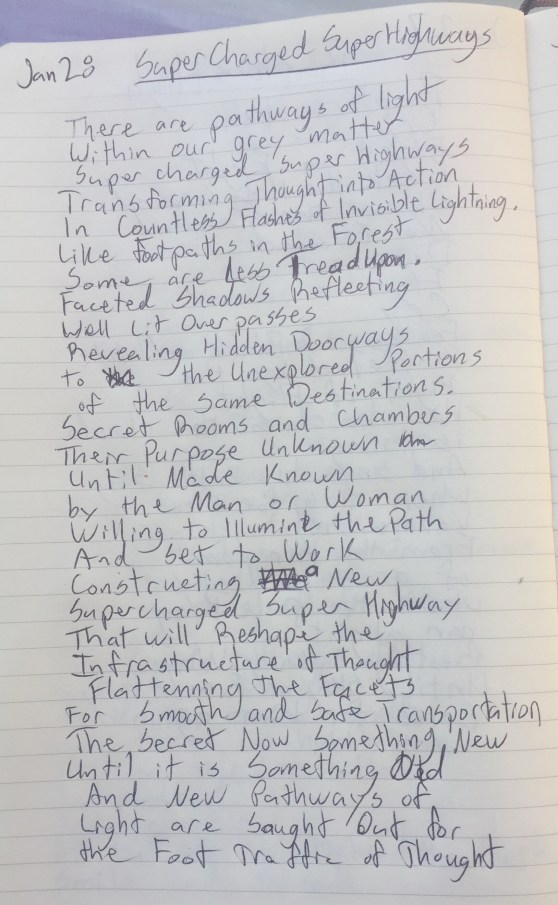 Jan 28 Super Charged Super Highways
There are pathways of light
Within our grey matter
Super charged Super Highways
Transforming Thought into Action
In Countless Flashes of Invisible Lightning.
Like footpaths in the Forest
Some are less Tread Upon.
Faceted Shadows Reflecting
Well Lit Overpasses
Revealing Hidden Doorways
to the Unexplored Portions
of the Same Destinations.
Secret Rooms and Chambers
Their Purpose Unknown
Until Made Known
by the Man or Woman
Willing to Illumine the Path
And Set to Work
Constructing a New
Supercharged Super Highway
That will Reshape the
Infrastructure of Thought
Flattenning the Facets
For Smooth and Safe Transportation
The Secret Now Something New
Until it is Something Old
And New Pathways of
Light are Saught Out for
the Foot Traffic of Thought